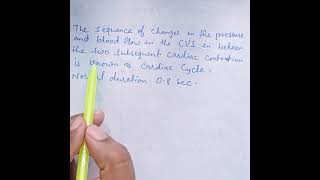 The sequence of changes in the pressure
and blood flow in the CVS in between
the two subsequent cardiac contraction
is known as cardiac cycle.
Normal duration 0.8 sec.